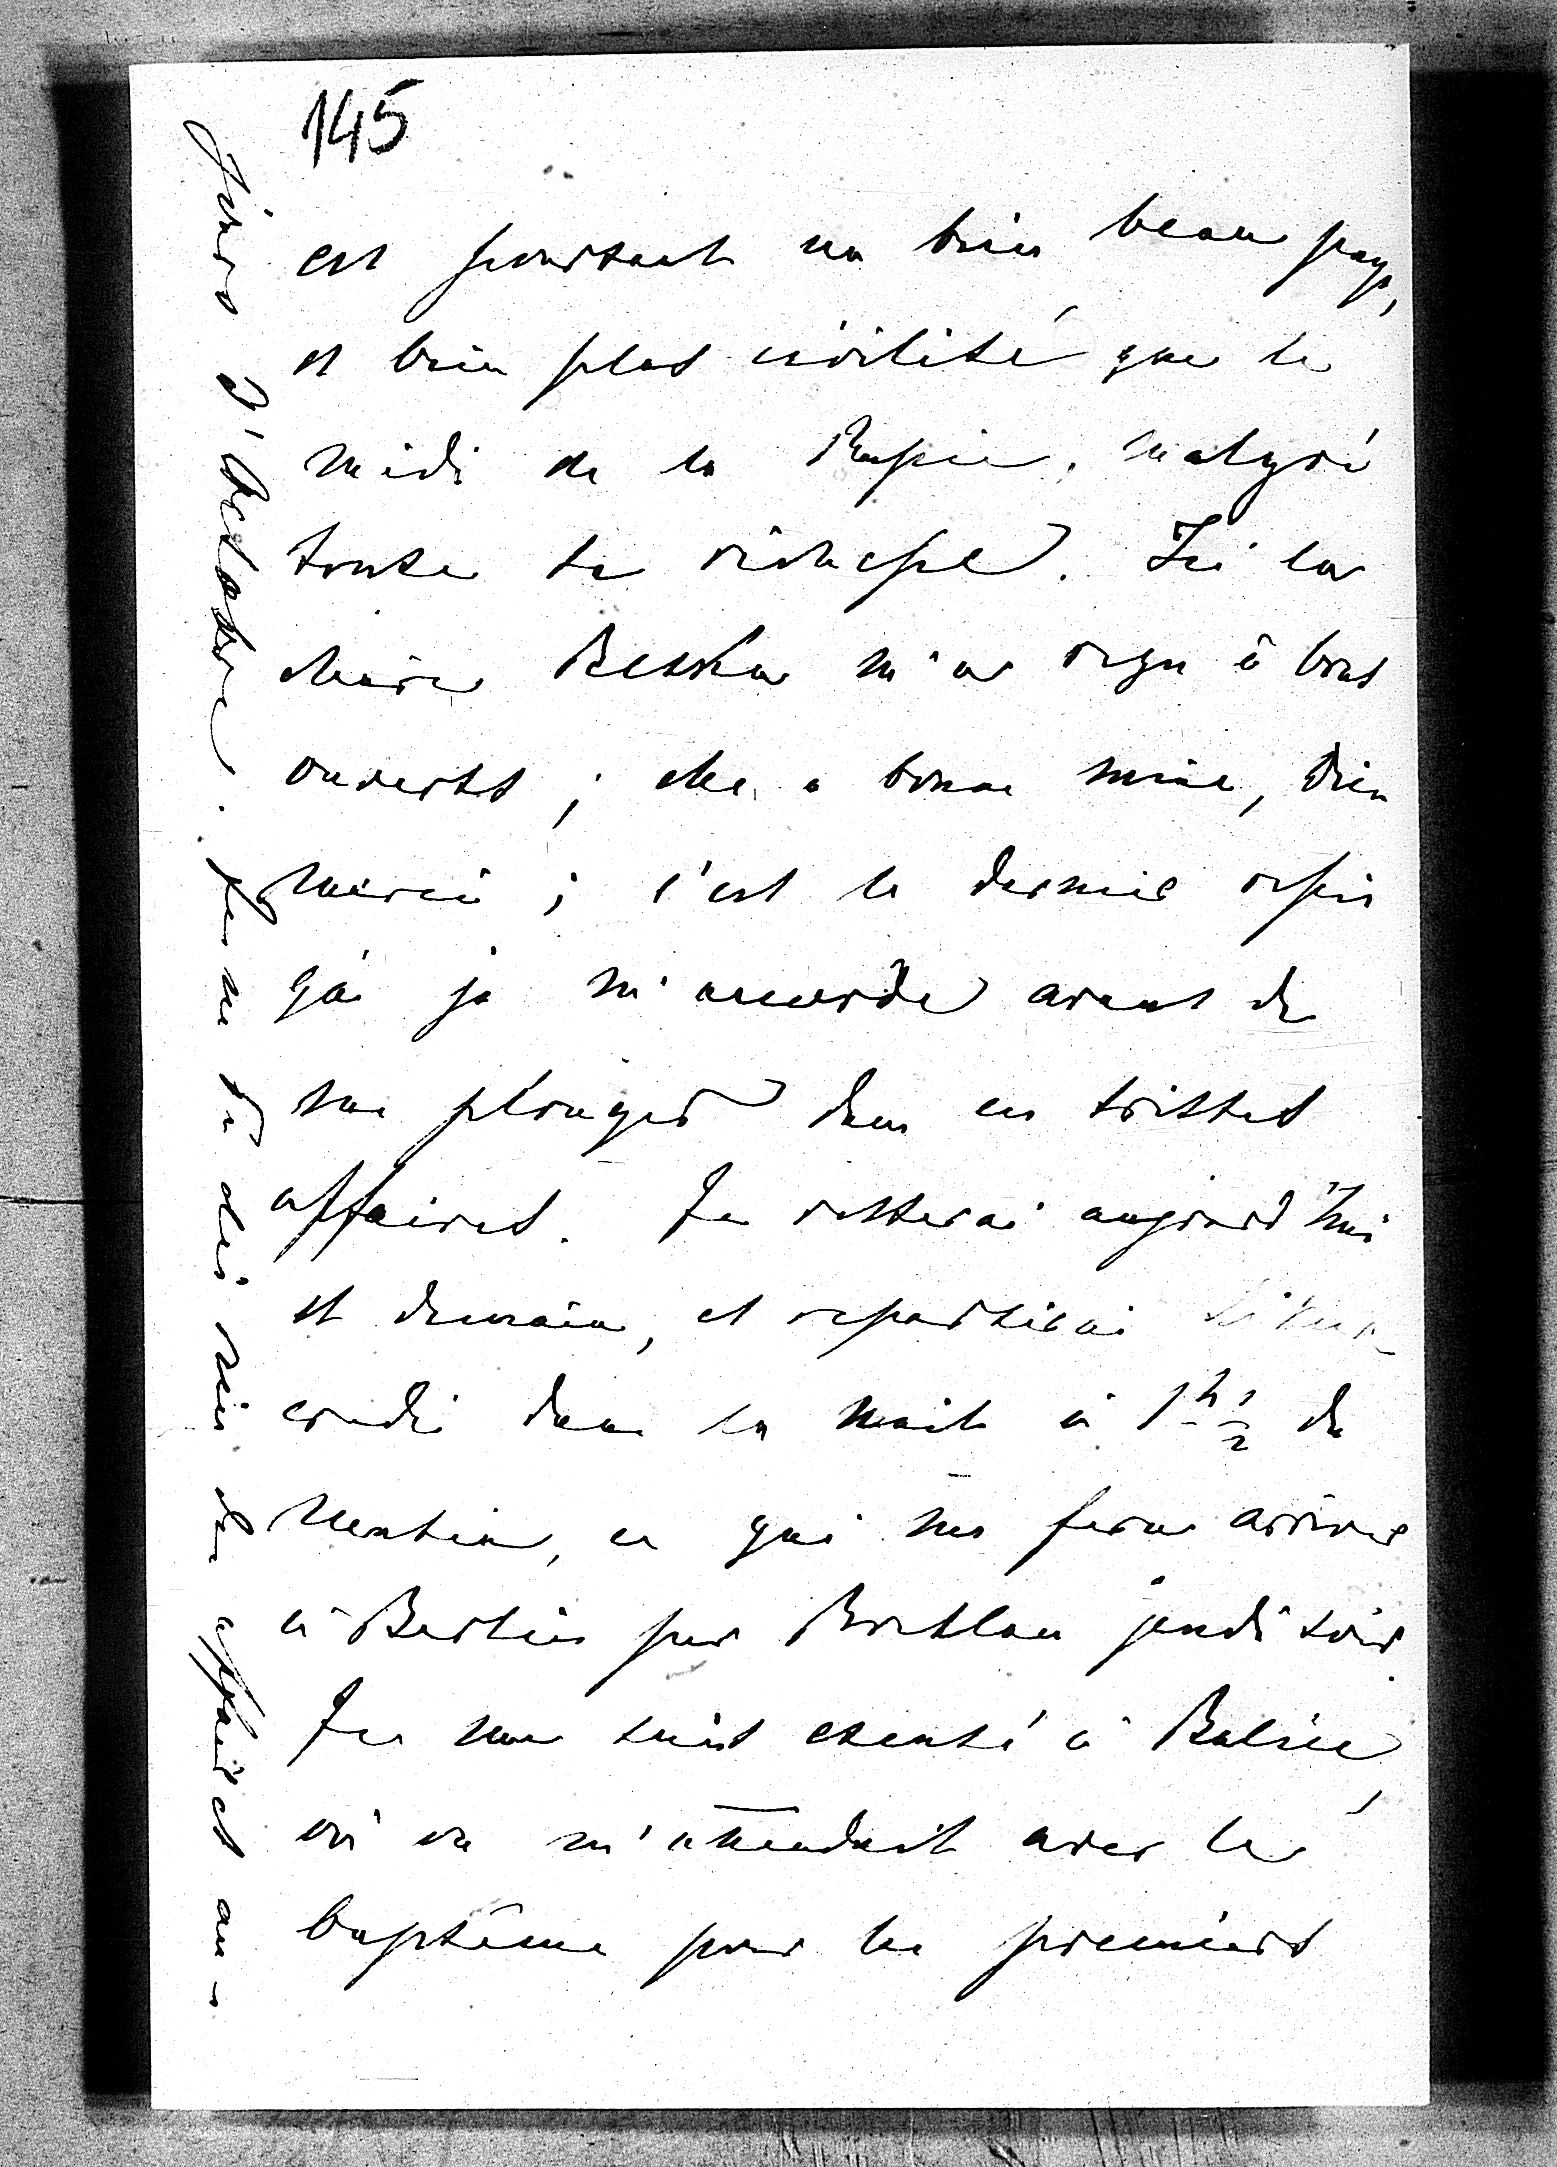 145
est pourtant un bien beau pays,
et bien plus civilisé que le
midi de la Russie, malgré
toute sa richesse. Ici la
chère Bichka m'a reçu à bras
ouverts ; elle a bonne mine, Dieu
merci ; c'est le dernier répit
que je m'accorde avant de
me plonger dans ces tristes
affaires. Je resterai aujourd'hui
et demain, et repartirai
credi dans la nuit à 1h 1/2 du
matin, ce qui me fera arriver
à Berlin par Breslau jeudi soir.
Je me suis excusé à
où on m'attendait avec le
baptême pour les premiers
jours d'Octobre. Je ne dé ciderai des affaires au-